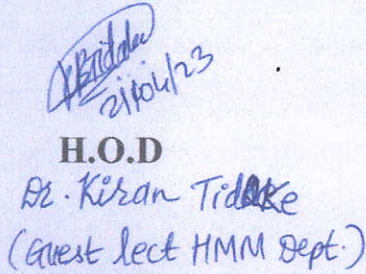 21/04/23
H.O.D
Dr. Kiran Tidke
(Guest lect HMM Dept.)